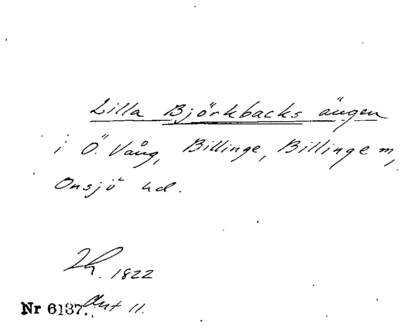 Lilla Björkbacks ängen
i Ö. Vång, Billinge, Billinge m,
Onsjö hd.
Lh. 1822
Nr 6137. Akt 11.